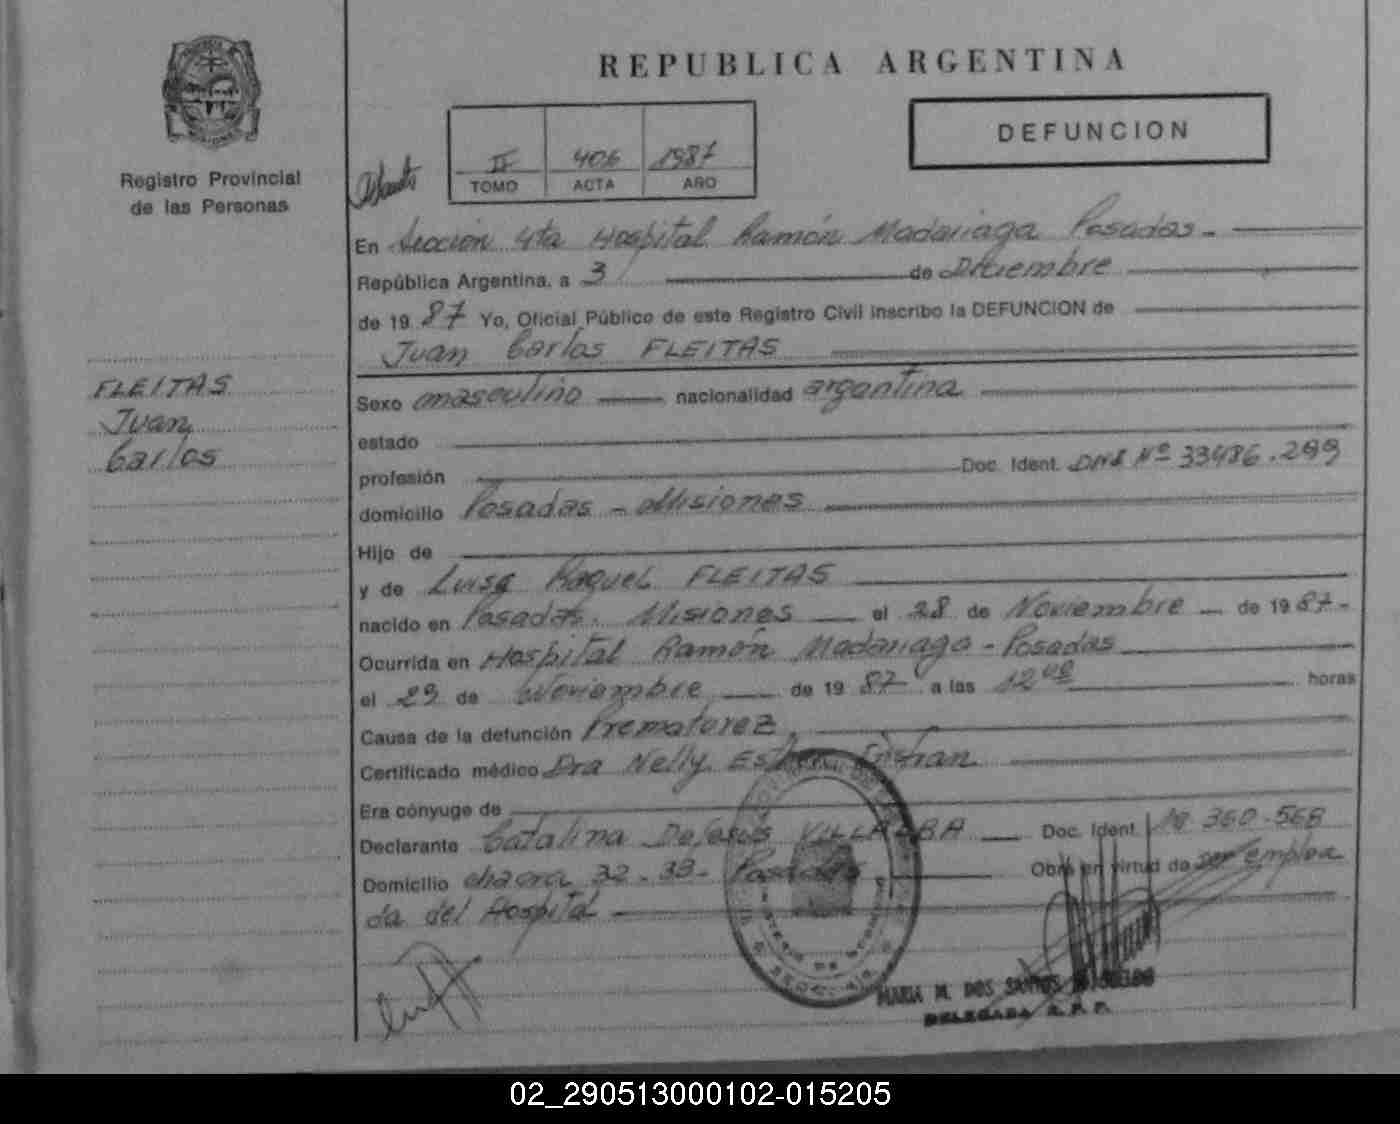 REPUBLICA ARGENTINA
DEFUNCION
II 406 1987
TOMO ACTA AÑO
Registro Provincial
de las Personas
En Sección 4ta Hospital Ramón Madariaga Posadas -
República Argentina, a 3 de Diciembre
de 19 87 Yo, Oficial Público de este Registro Civil inscribo la DEFUNCION de
Juan Carlos FLEITAS
FLEITAS
Juan
Carlos
Sexo masculino nacionalidad argentina
estado
profesión Doc. Ident. DNI Nº 33486.299
domicilio Posadas - Misiones
Hijo de
y de Luisa Raquel FLEITAS
nacido en Posadas. Misiones el 28 de Noviembre de 19 87-
Ocurrida en Hospital Ramón Madariaga - Posadas
el 29 de Noviembre de 19 87 a las 12 00 horas
Causa de la defunción Prematurez
Certificado médico Dra Nelly Esther
Era cónyuge de
Declarante Catalina DeJesús VILLALBA Doc. Ident. 10 360-568
Domicilio chacra 32-33- Posadas Obra en virtud de ser emplea
da del Hospital
MARIA M. DOS SANTOS
DELEGADA R.P.P.
02_290513000102-015205